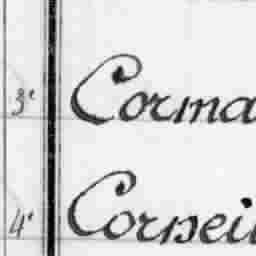 3e Corma
4e Corneil